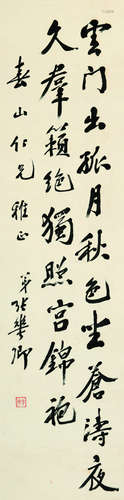 雲門出孤月秋色坐蒼濤夜
久羣籟絕獨照宮錦袍
春山仁兄雅正
弟張燮卿